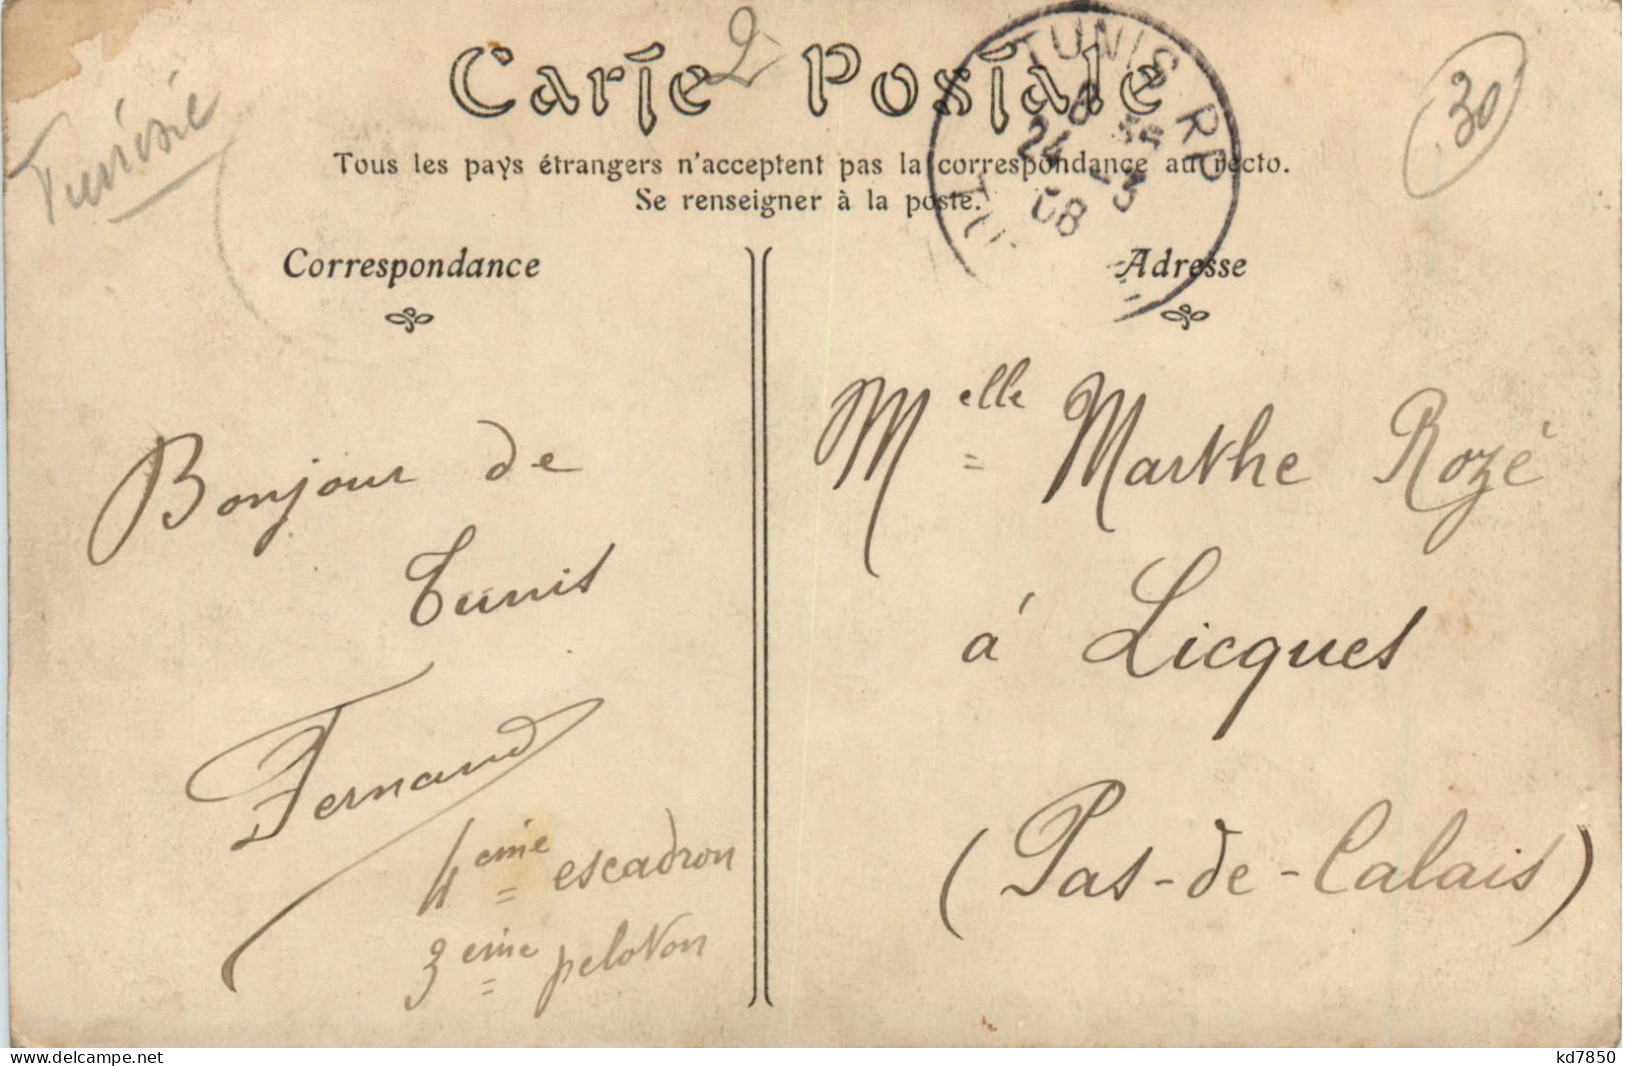 Carte Postale
2
30
Tunisie
TUNIS RP
8
24 -3
08
Tous les pays étrangers n'acceptent pas la correspondance au recto.
Se renseigner à la poste.
Correspondance
Adresse
Bonjour de
Tunis
Fernand
4eme escadron
3eme peloton
Melle Marthe Rozé
à Licques
(Pas-de-Calais)
delcampe.net
kd7850